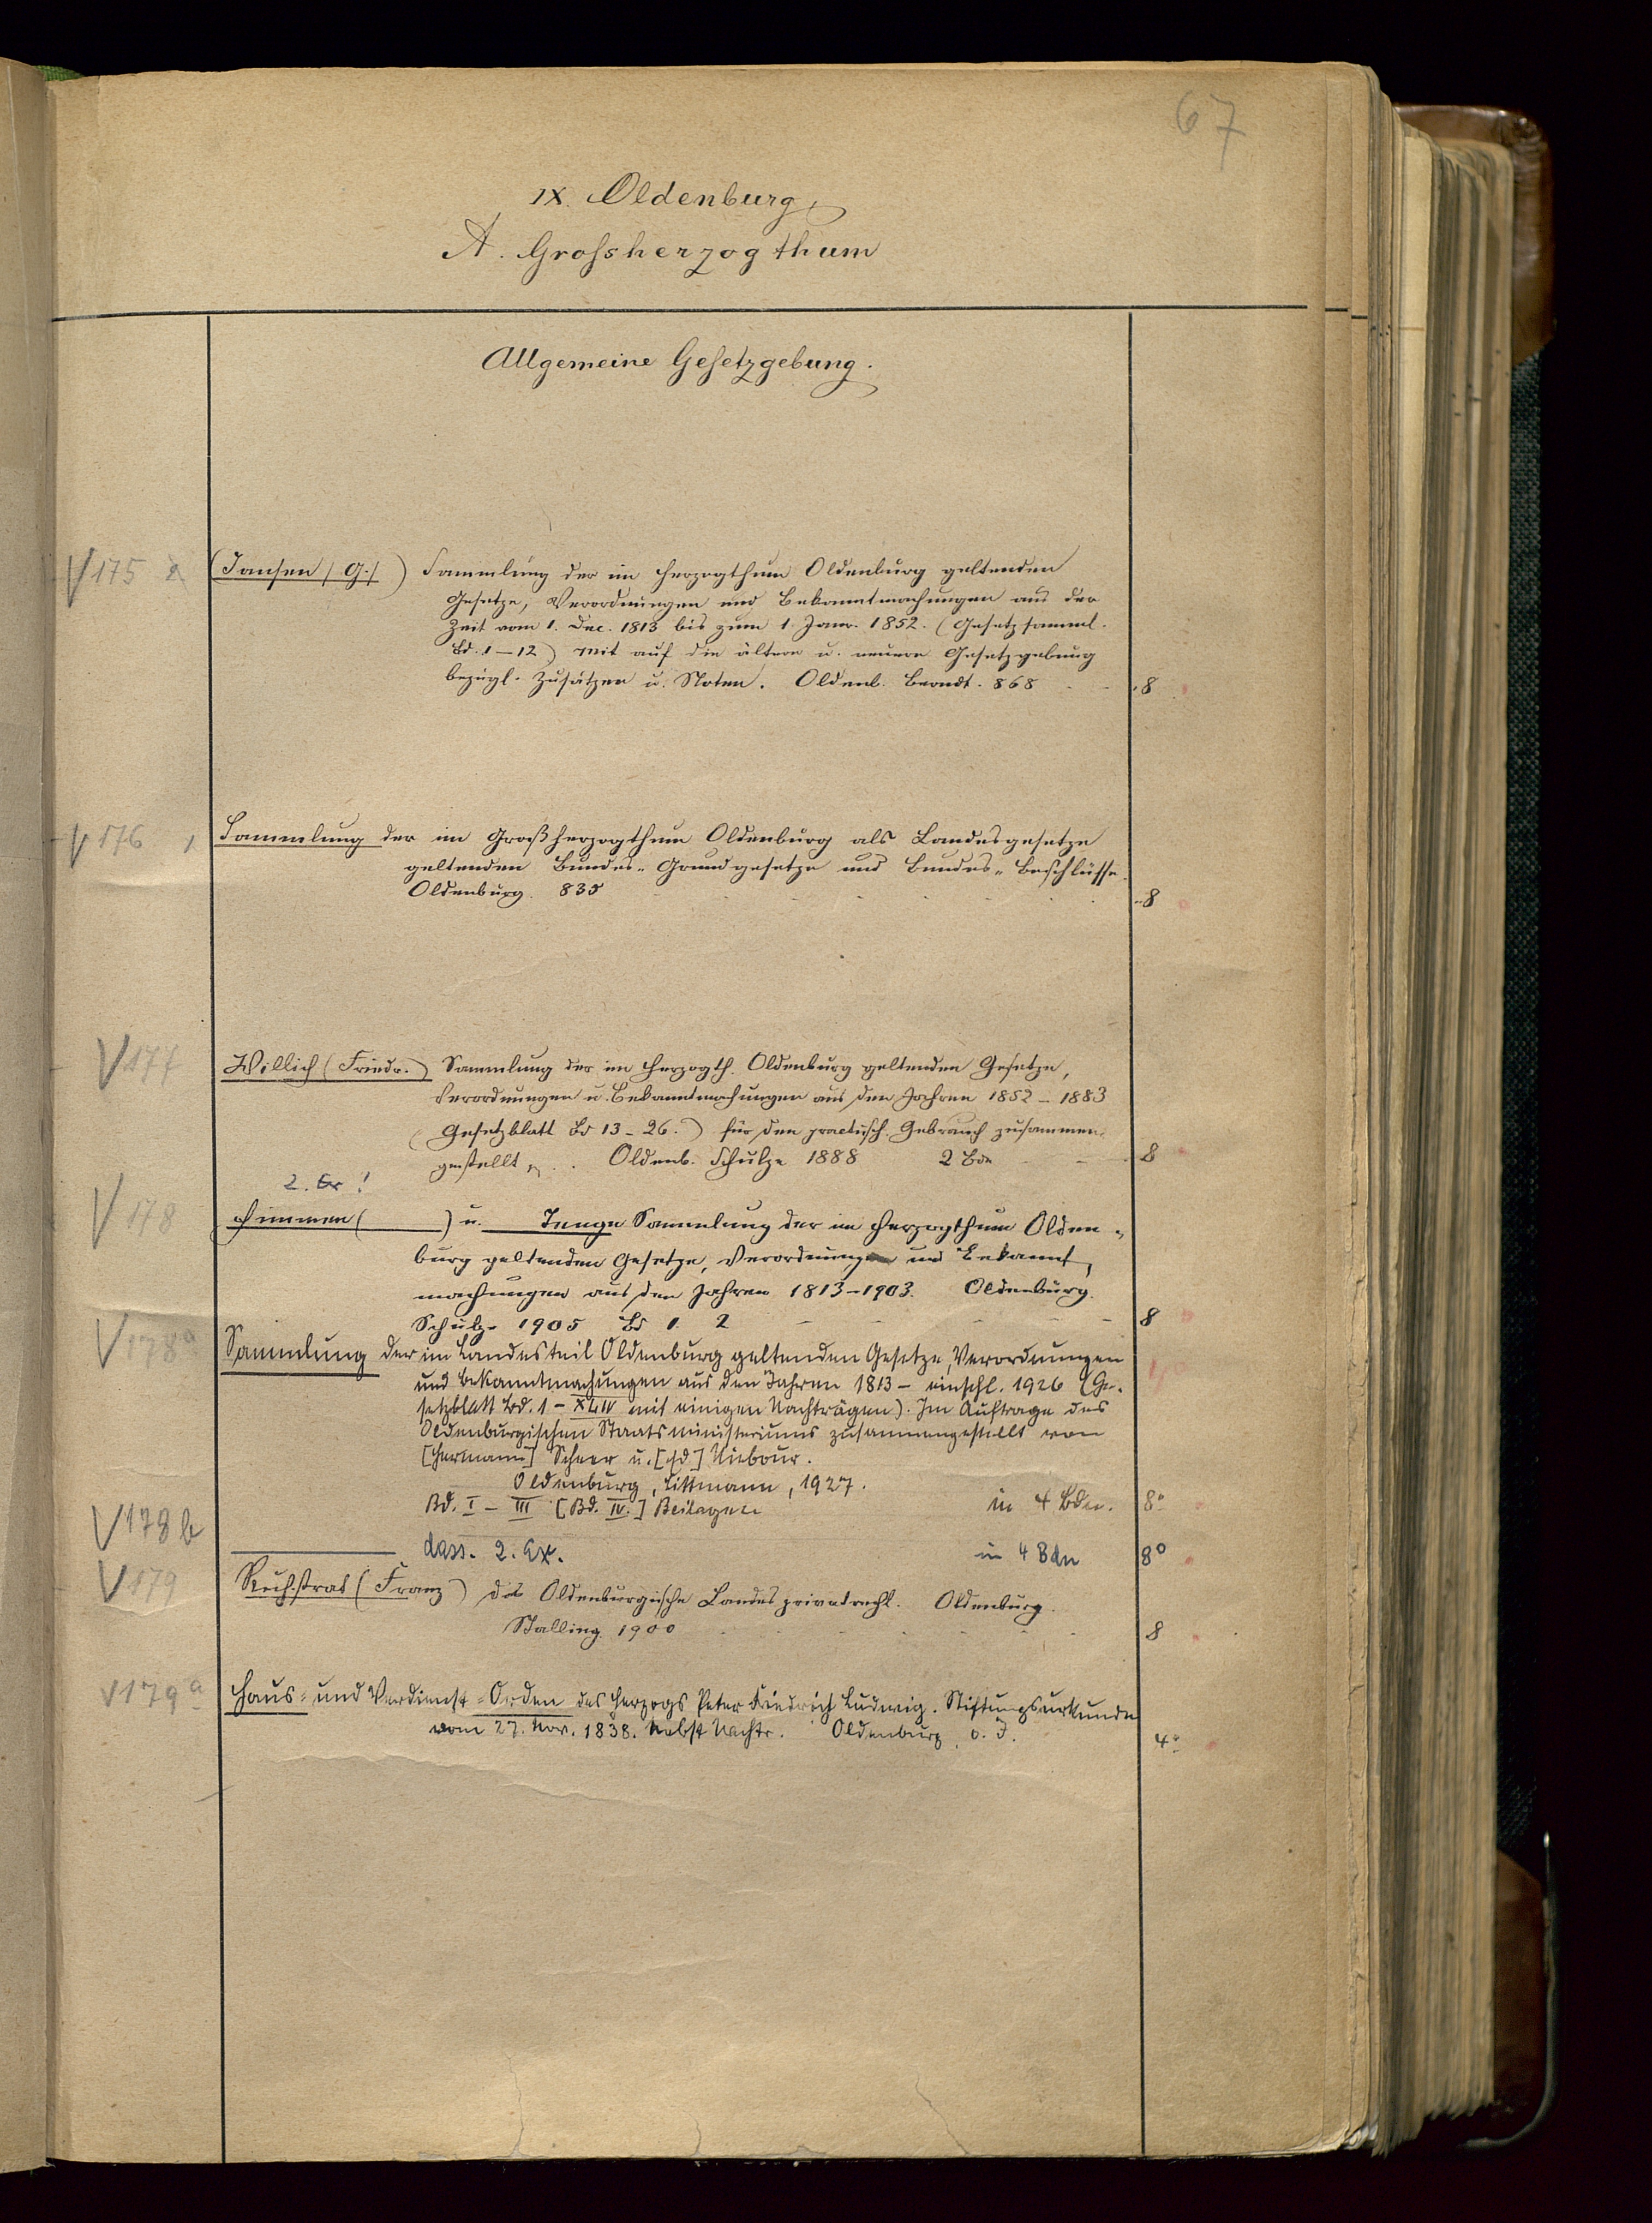 67
IX. Oldenburg,
A. Grossherzogthum
Allgemeine Gesetzgebung.
V 175 (Jansen (G.)) Sammlung der im Herzogthum Oldenburg geltenden
Gesetze, Verordnungen und Bekanntmachungen aus der
Zeit vom 1. Dec. 1813 bis zum 1. Janr. 1852. (Gesetzsamml.
Bd. 1–12) Mit auf die ältere u. neuere Gesetzgebung
bezügl. Zusätzen u. Noten. Oldenb. Berndt. 868 8
V 176 Sammlung der im Großherzogthum Oldenburg als Landesgesetze
geltenden Bundes-Grundgesetze und Bundes-Beschlüsse.
Oldenburg. 835 8
V 177 Willich (Friedr.) Sammlung der im Herzogth. Oldenburg geltenden Gesetze,
Verordnungen u. Bekanntmachungen aus den Jahren 1852–1883
(Gesetzblatt Bd 13–26.) für den practisch. Gebrauch zusammen-
gestellt Oldenb. Schulze 1888 2 Bde 8
2. Ex!
V 178 Himmen ( ) u. Tenge Sammlung der im Herzogthum Olden-
burg geltenden Gesetze, Verordnungen und Bekannt-
machungen aus den Jahren 1813–1903. Oldenburg.
Schulz. 1905 Bd 1. 2 8
V 178a Sammlung der im Landesteil Oldenburg geltenden Gesetze, Verordnungen
und Bekanntmachungen aus den Jahren 1813 – einschl. 1926 (Ge-
setzblatt Bd. 1 – XLIV mit einigen Nachträgen). Im Auftrage des
Oldenburgischen Staatsministeriums zusammengestellt von
[Hermann] Scheer u. Niebour.
Oldenburg, Littmann, 1927.
Bd. I – III [Bd. IV.] Beilagen in 4 Bdn. 8°
V 178b dass. 2. Ex. in 4 Bdn 8°
V 179 Ruhstrat (Franz) das Oldenburgische Landesprivatrecht. Oldenburg.
Stalling. 1900 8
V 179a Haus- und Verdienst-Orden des Herzogs Peter Friedrich Ludwig. Stiftungsurkunde
vom 27. Nov. 1838. Nebst Nachtr. Oldenburg, o. J. 4°